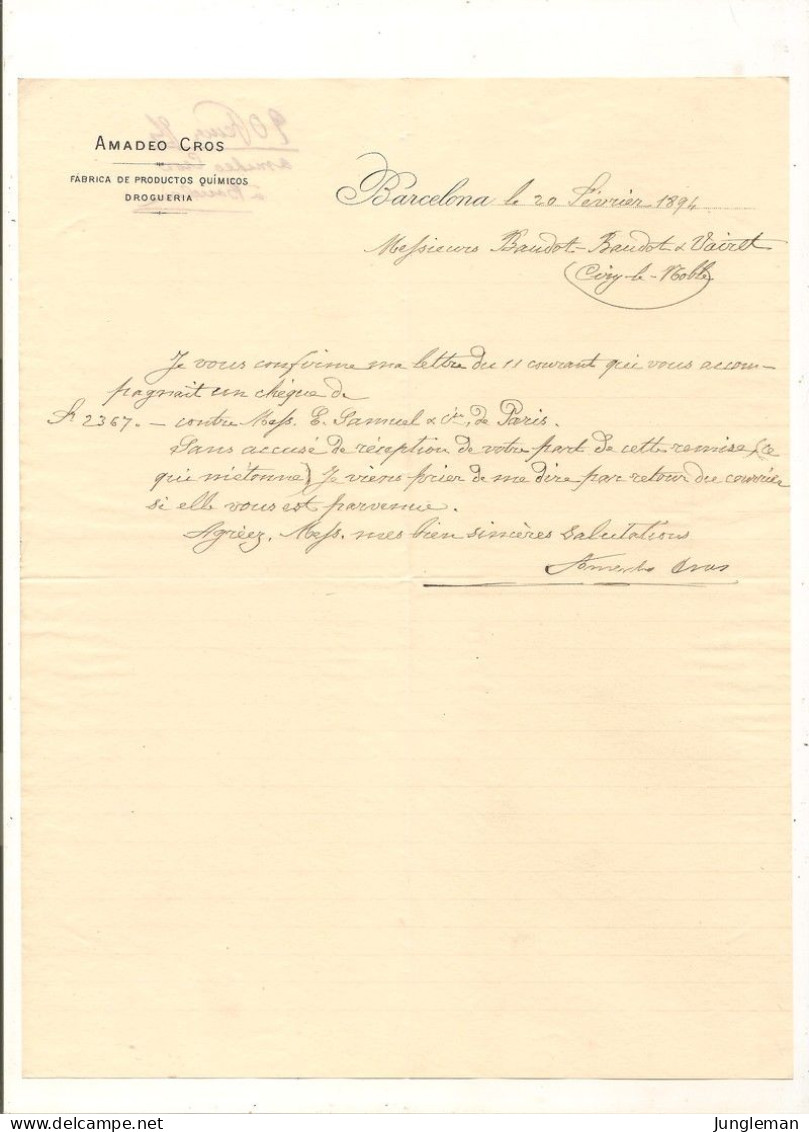 AMADEO CROS
FÁBRICA DE PRODUCTOS QUÍMICOS
DROGUERIA
Barcelona le 20 Février 1894
Messieurs Baudot-Baudot & Vairet
(Ciry-le-Noble)
Je vous confirme ma lettre du 11 courant qui vous accom-
pagnait un chéque de
Fr 2367.- contre Mess. E. Samuel & Cie, de Paris.
Sans accusé de réception de votre part de cette remise (ce
qui m'étonne) Je viens prier de me dire par retour du courrier
si elle vous est parvenue.
Agréez, Mess. mes bien sincères salutations
Amadeo Cros
www.delcampe.net
Jungleman